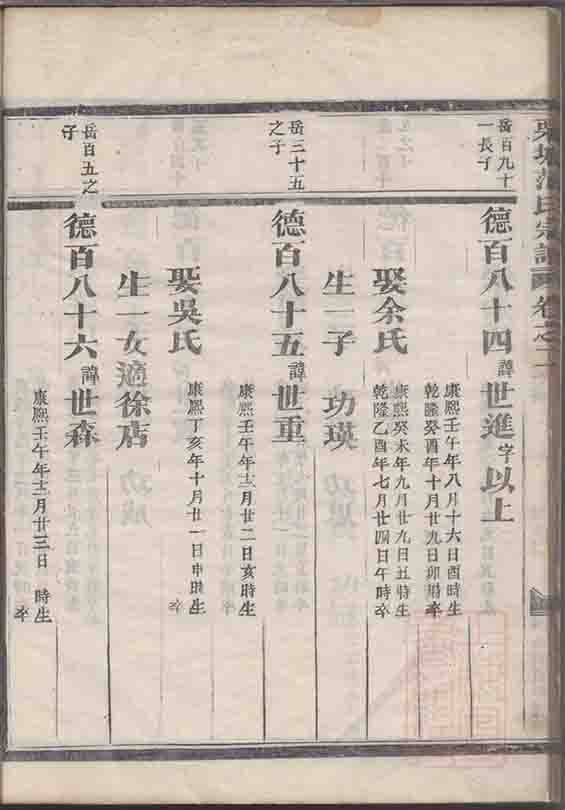 范氏宗譜 卷之二
岳百九十
一長子
德百八十四諱世進字以上
康熙壬午年八月十六日酉時生
乾隆癸酉年十月廿九日卯時卒
娶余氏
康熙癸未年九月廿九日丑時生
乾隆乙酉年七月廿四日午時卒
生一子 功瑛
岳三十五
之子
德百八十五諱世重
康熙壬午年十二月廿二日亥時生
娶吳氏
康熙丁亥年十月廿一日申時生
卒
生一女適徐店
岳百五之
子
德百八十六諱世森
康熙壬午年十二月廿三日 時生
卒